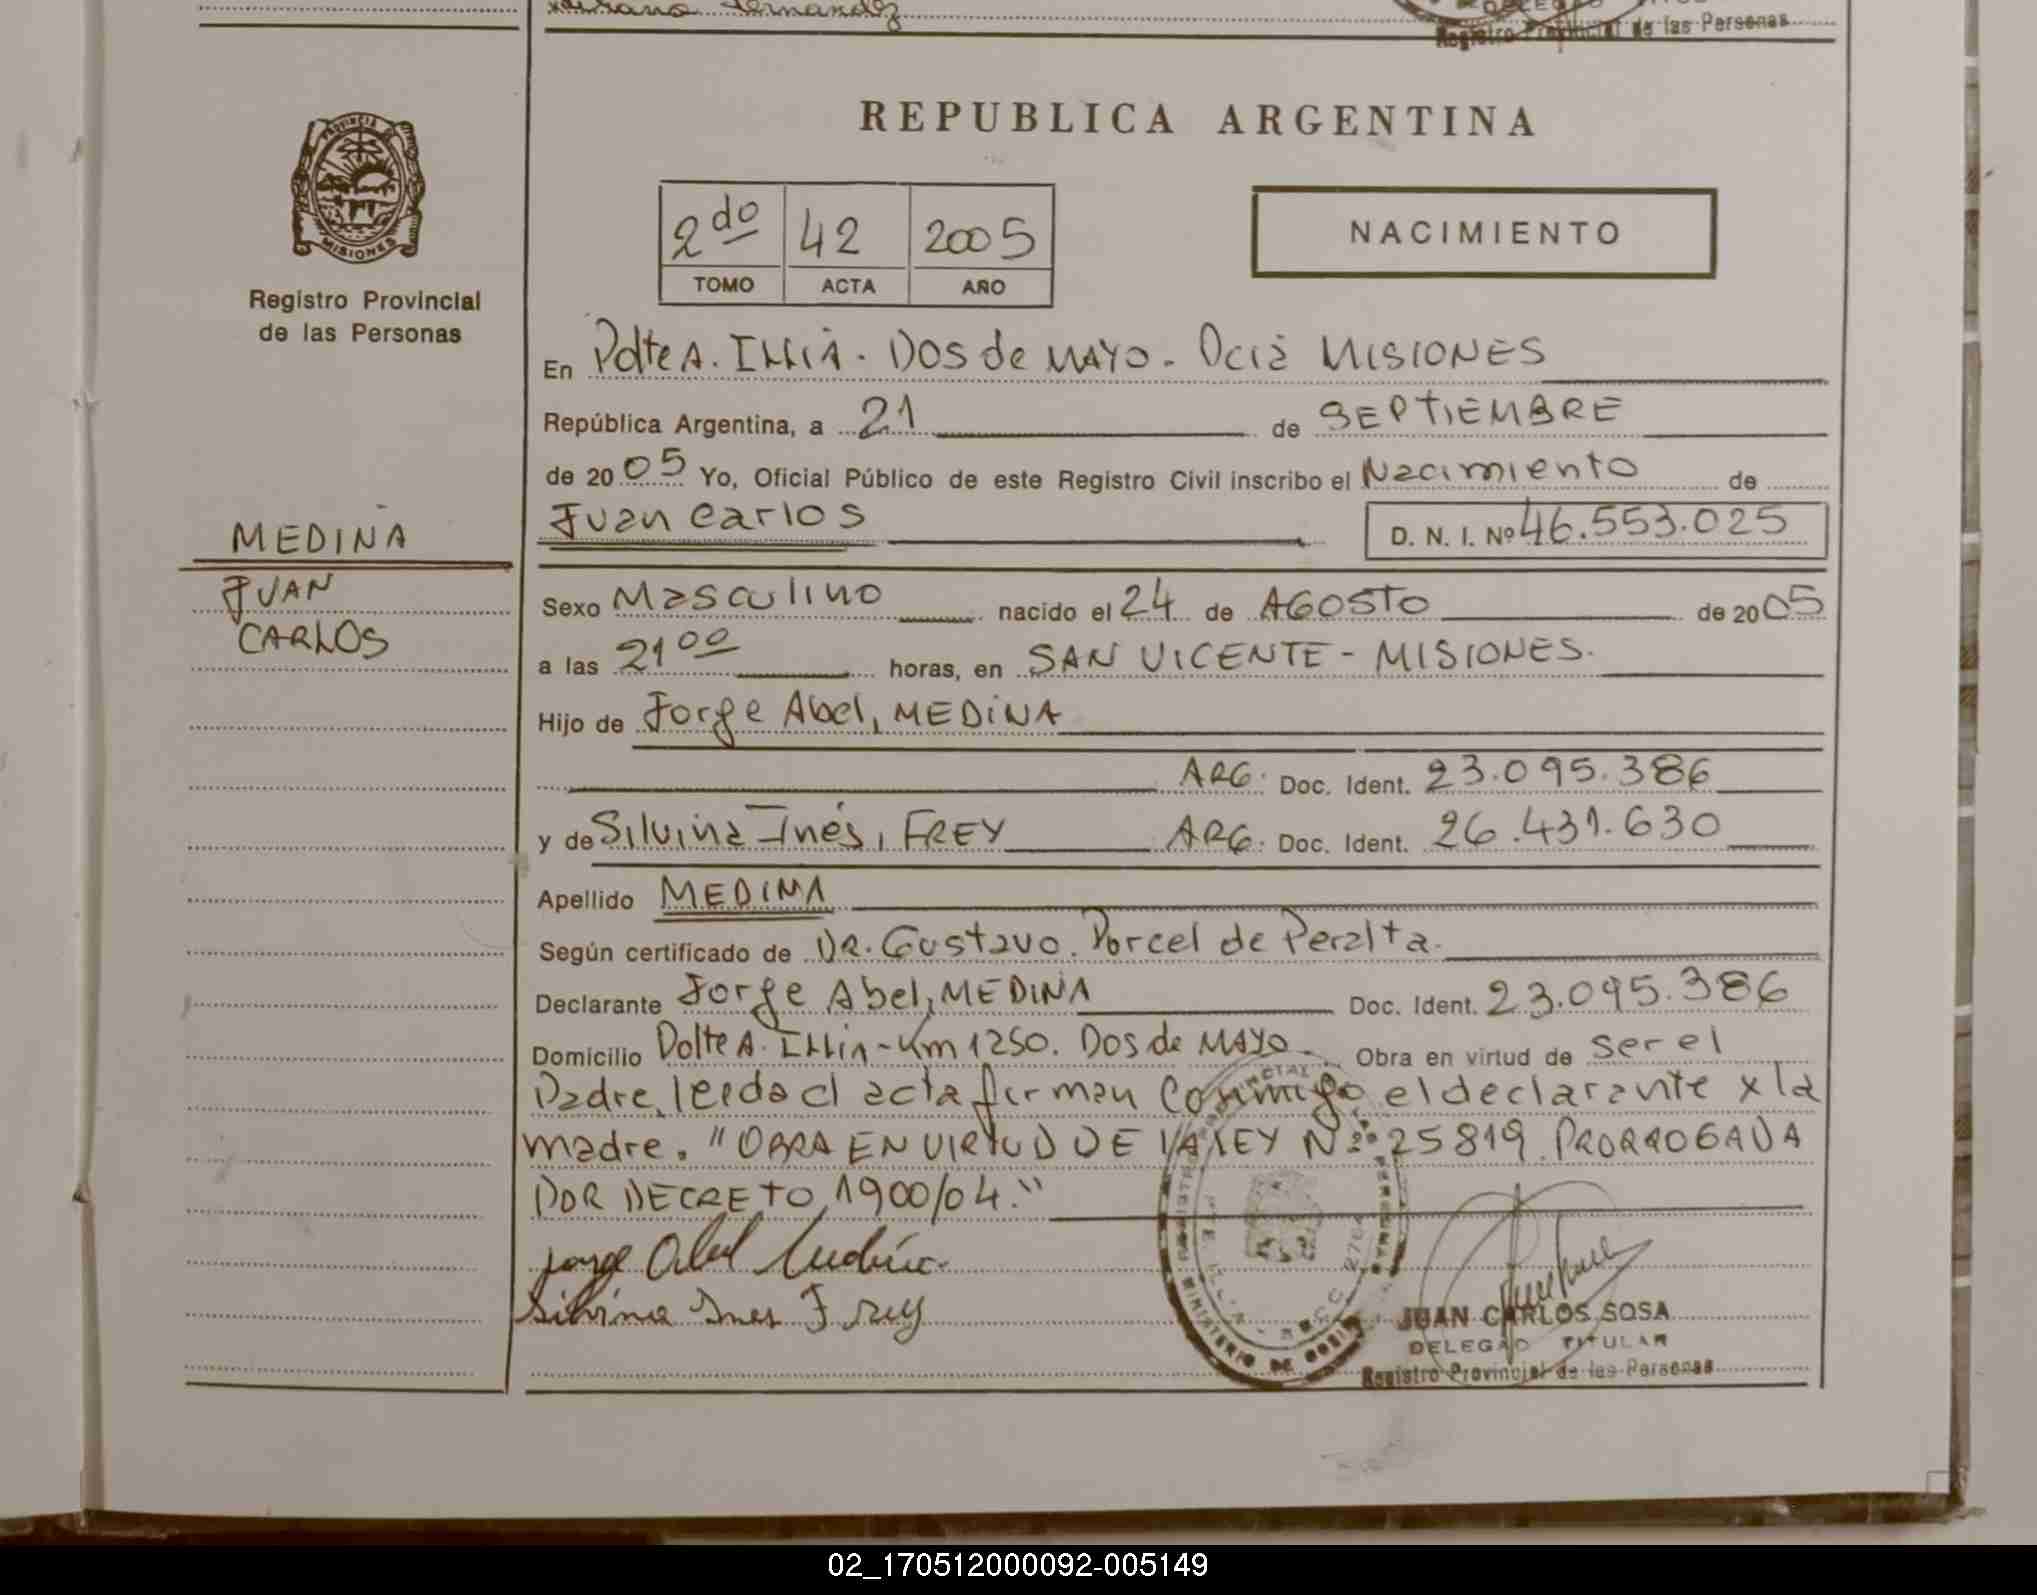 Fernandez
Registro Provincial de las Personas
PROVINCIA
MISIONES
Registro Provincial
de las Personas
MEDINA
JUAN
CARLOS
REPUBLICA ARGENTINA
2do 42 2005
TOMO ACTA AÑO
NACIMIENTO
En Pdte A. ILLIA. DOS de MAYO. Pciа MISIONES
República Argentina, a 21 de SEPTIEMBRE
de 2005 Yo, Oficial Público de este Registro Civil inscribo el Nacimiento de
Juan Carlos D. N. I. Nº 46.553.025
Sexo Masculino nacido el 24 de AGOSTO de 2005
a las 21 00 horas, en SAN VICENTE - MISIONES.
Hijo de Jorge Abel, MEDINA
ARG. Doc. Ident. 23.095.386
y de Silvina Inés, FREY ARG. Doc. Ident. 26.431.630
Apellido MEDINA
Según certificado de DR. Gustavo. Porcel de Peralta.
Declarante Jorge Abel, MEDINA Doc. Ident. 23.095.386
Domicilio Pdte A. ILLia - Km 1250. Dos de MAYO. Obra en virtud de ser el
Padre, leida el acta firman conmigo el declarante x la
madre. "OBRA EN VIRTUD DE LA LEY Nº 25819. PRORROGADA
POR DECRETO 1900/04."
Jorge Abel Medina
Silvina Ines Frey
MINISTERIO DE GOBIERNO
JUAN CARLOS SOSA
DELEGADO TITULAR
Registro Provincial de las Personas
02_170512000092-005149